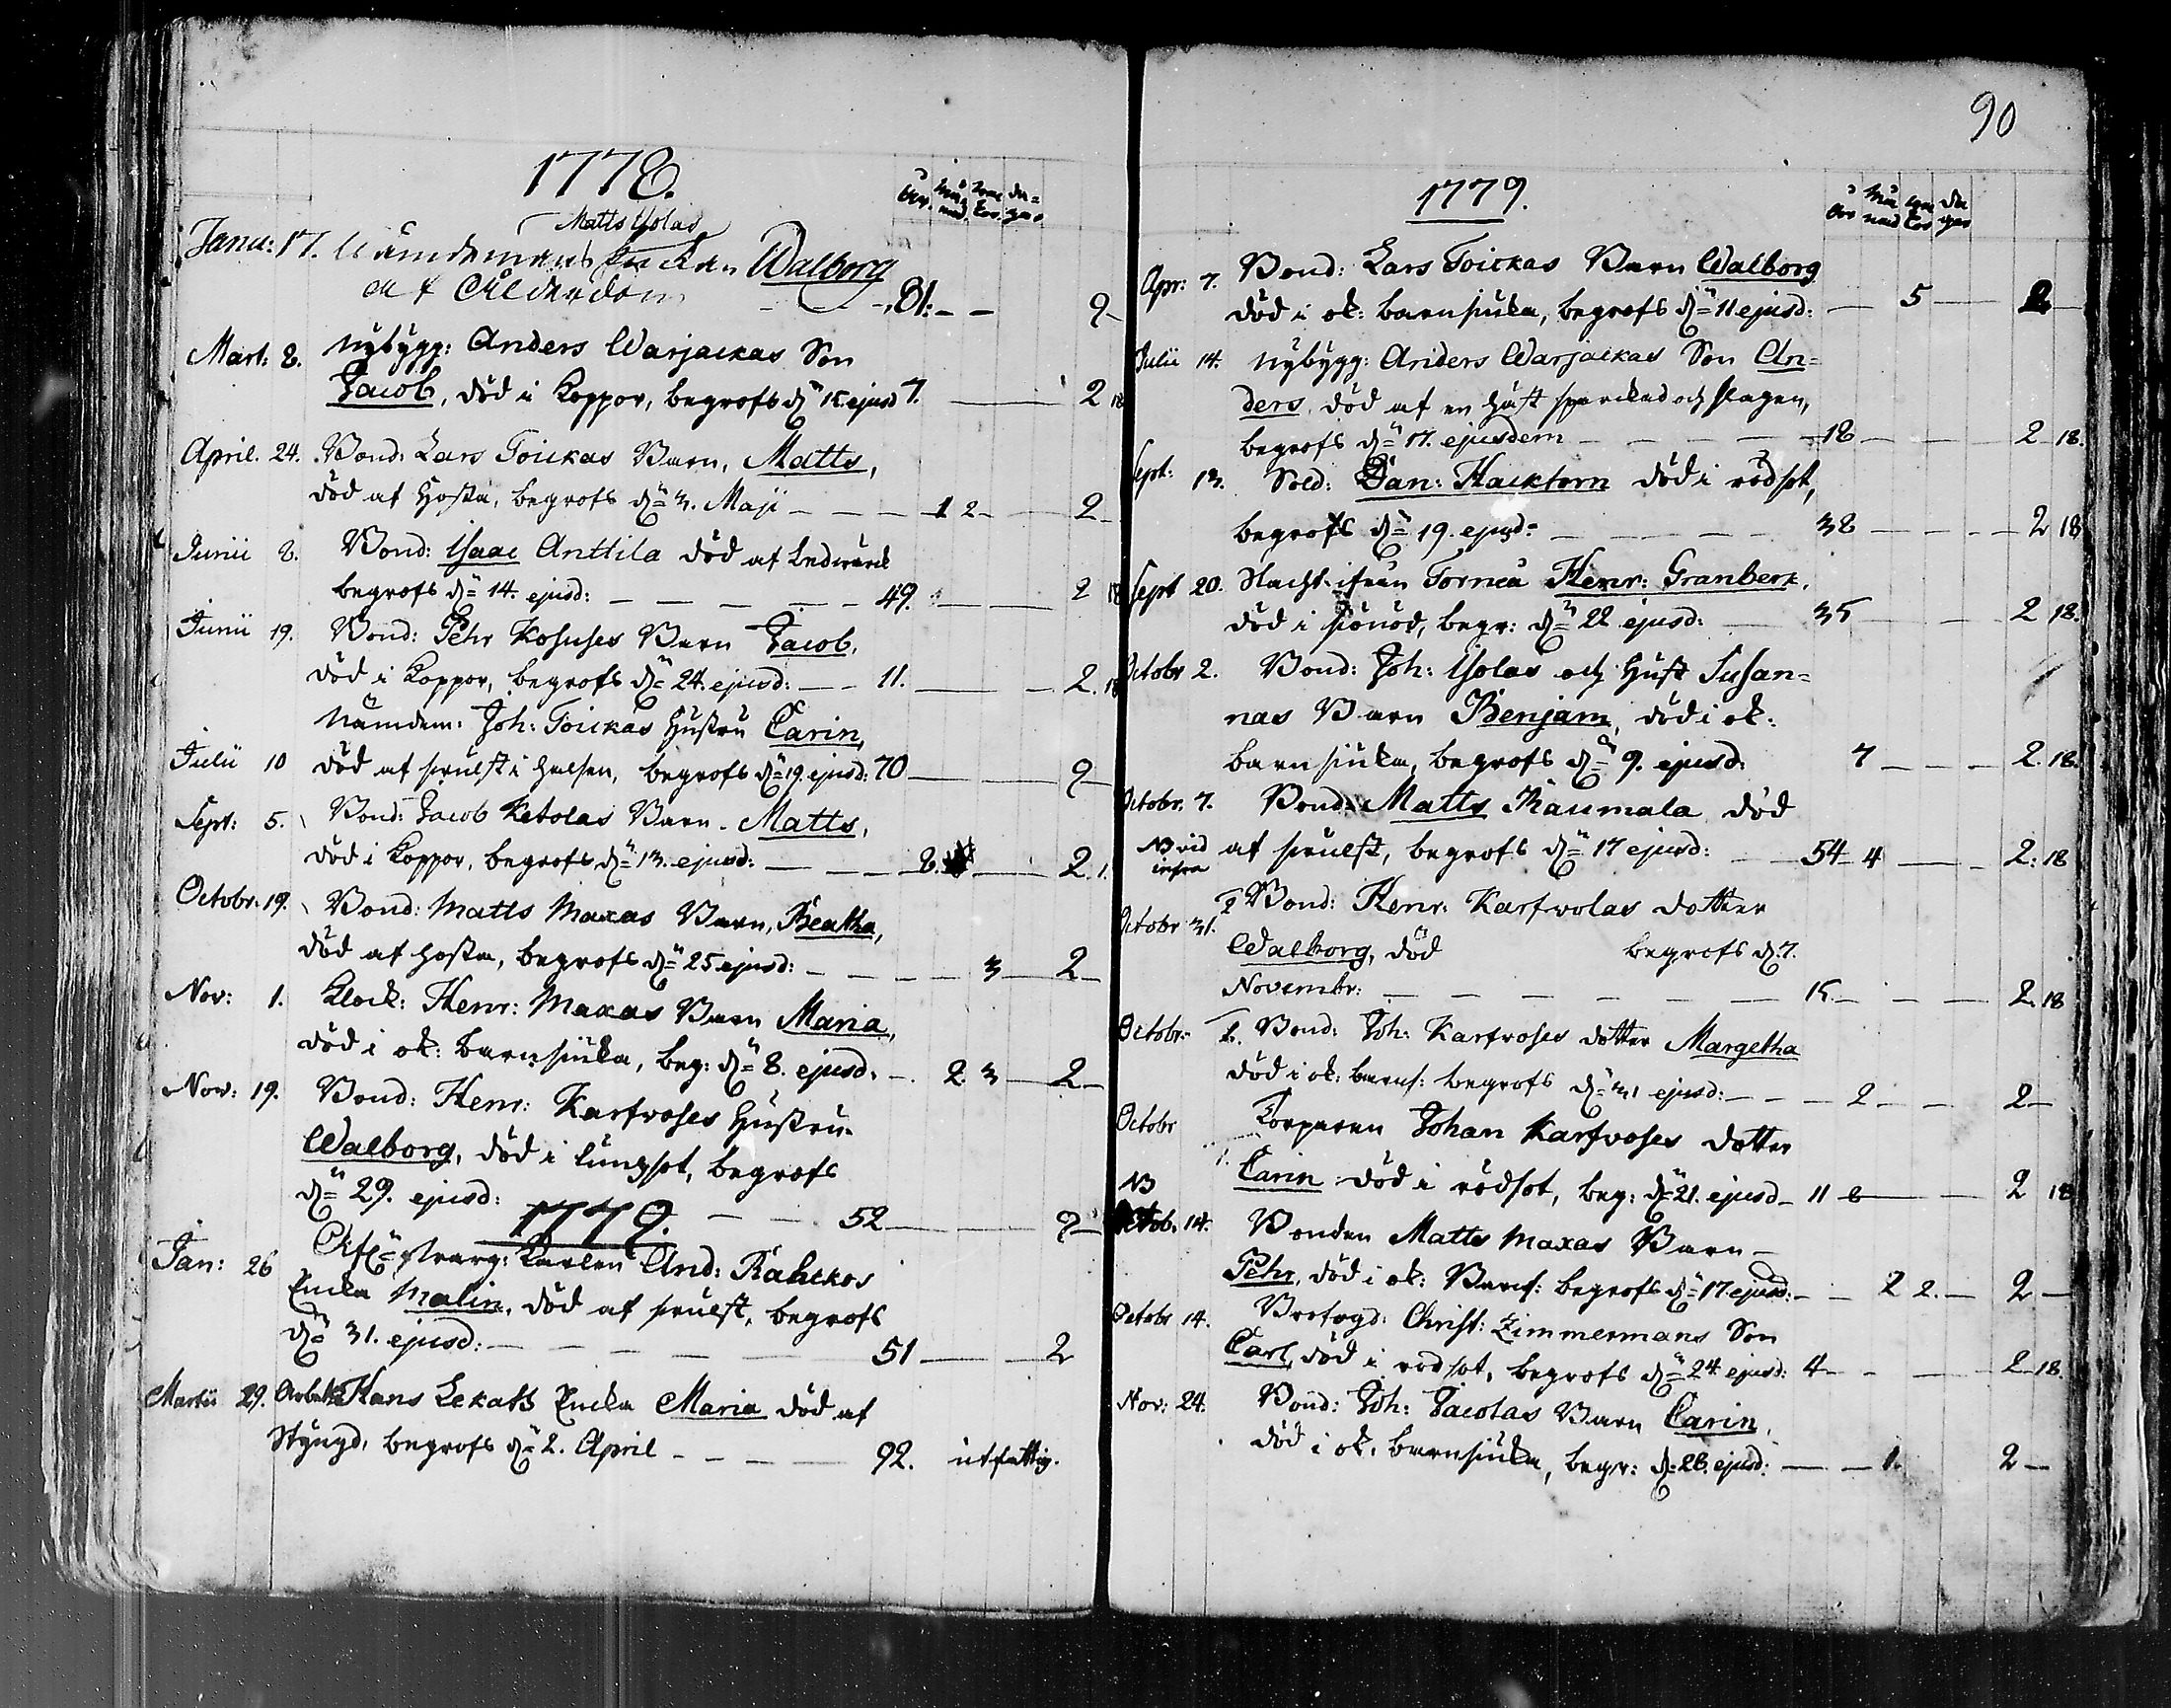 1778.
åhr. månad. weckor. dagar.
Matts Yolas
Janu: 17. Nämdemans Enckan Walborg
af Ålderdom - - 81: - - 2 -
Mart: 8. Nybygg: Anders Warjackas Son
Jacob, död i koppor, begrofs dn 15. ejusd 7. 2 18
April. 24. Bond: Lars Toickas Barn, Matts,
död af Hosta, begrofs dn 3. Maji - - - 1 2 - 2 -
Junii 8. Bond: Isaac Anttila död af ledwärck
begrofs dn 14. ejusd: - - - - - 49. 2 18
Junii 19. Bond: Pehr Kohuses Barn Jacob,
död i koppor, begrofs dn 24. ejusd: - - 11. - 2. 18
Nämdem: Joh: Toickas Hustru Carin,
Julii 10 död af swulst i halsen, begrofs dn 19. ejusd: 70 2 -
Sept: 5. Bond: Jacob Ketolas Barn. Matts,
död i koppor, begrofs dn 13. ejusd: - - - 8. 2. 1.
Octobr: 19. Bond: Matts Maxas Barn, Beatha,
död af hosta, begrofs dn 25 ejusd: - - - - 3 - 2 -
Nov: 1. Klock: Henr: Maxas Barn Maria,
död i ok: barnsjuka, beg: dn 8. ejusd. - 2. 3 - 2 -
Nov: 19. Bond: Henr: Karfwoses Hustru
Walborg, död i lungsot, begrofs
dn 29. ejusd: - - 52 2 -
1779.
Jan: 26 karlen And: Rahckos
Encka Malin, död af swulst, begrofs
dn 31. ejusd: - - - - 51 - - 2
Martii 29. Arbetsk Hans Lekatts Encka Maria död af
Styngd, begrofs dn 2. April - - - - 92. utfattig.
90
1779.
åhr månad weckor dagar
Apr: 7. Bond: Lars Toickas Barn Walborg
död i ok: barnsjuka, begrofs dn 11 ejusd: - 5 - 2 -
Julii 14. Nybygg: Anders Warjackas Son An=
ders, död af en häst sparckad och slagen,
begrofs dn 17. ejusdem - - - - 18 - - 2 18.
Sept: 13. Sold: Dan: Hacktorn död i rödsot,
begrofs dn 19. ejusd: - - - - 38 - - - 2 18
Sept 20. ifrån Torneå Henr: Granberg,
död i sjönöd, begr: dn 22 ejusd: - 35 - - 2 18.
Octobr 2. Bond: Joh: Yolas och Hust Susan=
nas Barn Benjam, död i ok:
barnsjuka, begrofs dn 9. ejusd: 7 - - - 2. 18.
Octobr. 7. Bond: Matts Raumala död
NB vid infra af swulst, begrofs dn 17 ejusd: - 54 4 - - 2: 18
Octobr 31. Bond: Henr: Karfwolas dotter
Walborg, död begrofs d. 7.
Novembr: - - - - - - 15. - - - 2. 18
Octobr: 1. Bond: Joh: Karfwoses dotter Margetha
död i ok: barns: begrofs dn 31 ejusd: - - - 2 - - 2 -
Octobr Torparen Johan Karfwoses dotter
NB 1. Carin död i rödsot, beg: dn 21. ejusd - 11 8 - - 2 18
Octob. 14. Bonden Matts Maxas Barn -
Pehr, död i ok: Barns: begrofs dn 17. ejusd: - - 2 2. - 2 -
Octobr 14. Christ: Zimmermans Son
Carl, död i rödsot, begrofs dn 24 ejusd: 4 - - - 2 18.
Nov: 24. Bond: Joh: Jacolas Barn Carin,
död i ok. barnsjuka, begr: d. 28. ejusd: - - 1. 2 -